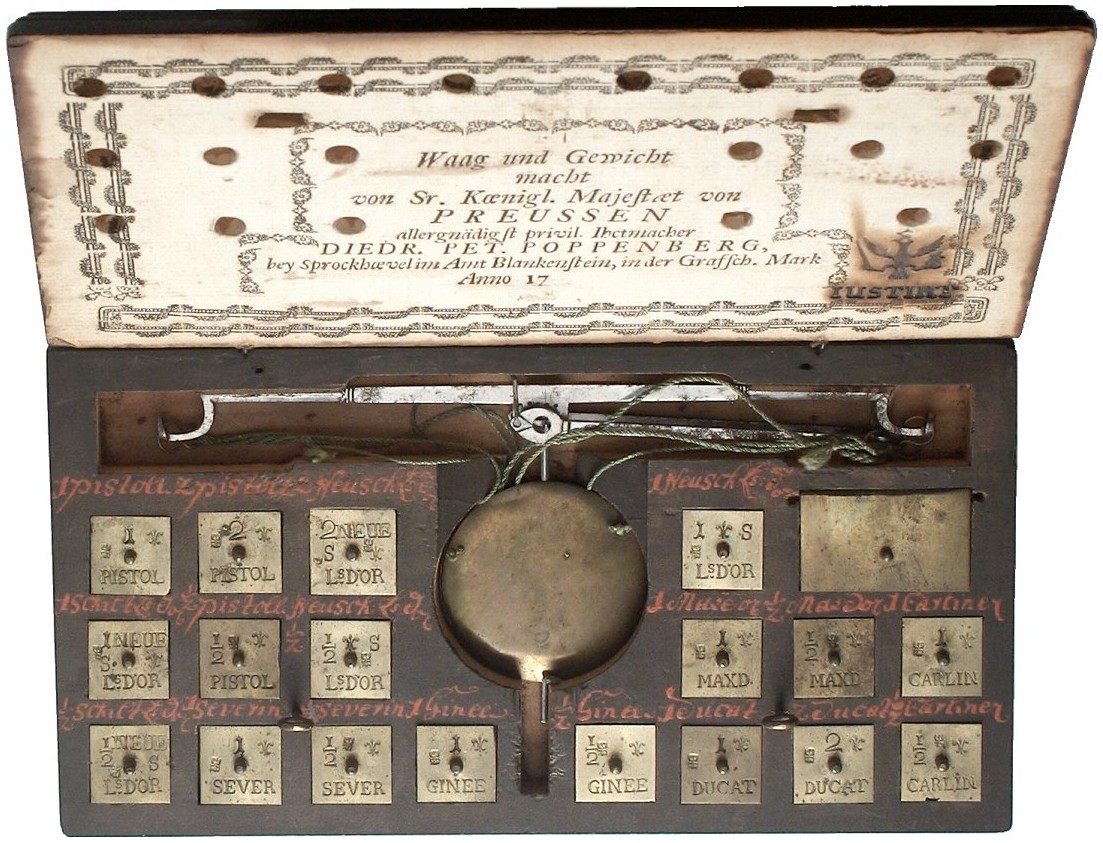 Waag und Gewicht
macht
von Sr. Kœnigl. Majeſtæt von
PREUSSEN
allergnädigſt privil. Ihetmacher
DIEDR. PET. POPPENBERG,
bey Sprockhœvel im Amt Blankenſtein, in der Grafſch. Mark
Anno 17
IUSTIRT
1 pistoll. 2 pistoll 2 Neusch
1 Neusch
1 PISTOL
2 PISTOL
2 NEUE S LSD'OR
1 S LSD'OR
1 Schilt ½ pistoll. ½ Neusch
1 Maxdor ½ Maxdor 1 Carliner
1 NEUE S LSD'OR
1/2 PISTOL
1/2 S LSD'OR
1 MAXD
1/2 MAXD
1 CARLIN
½ Schilt 1 Severin ½ Severin 1 Ginee
½ Ginee 1 Ducat 2 Ducat ½ Carliner
1/2 NEUE S LSD'OR
1 SEVER
1/2 SEVER
1 GINEE
1/2 GINEE
1 DUCAT
2 DUCAT
1/2 CARLIN